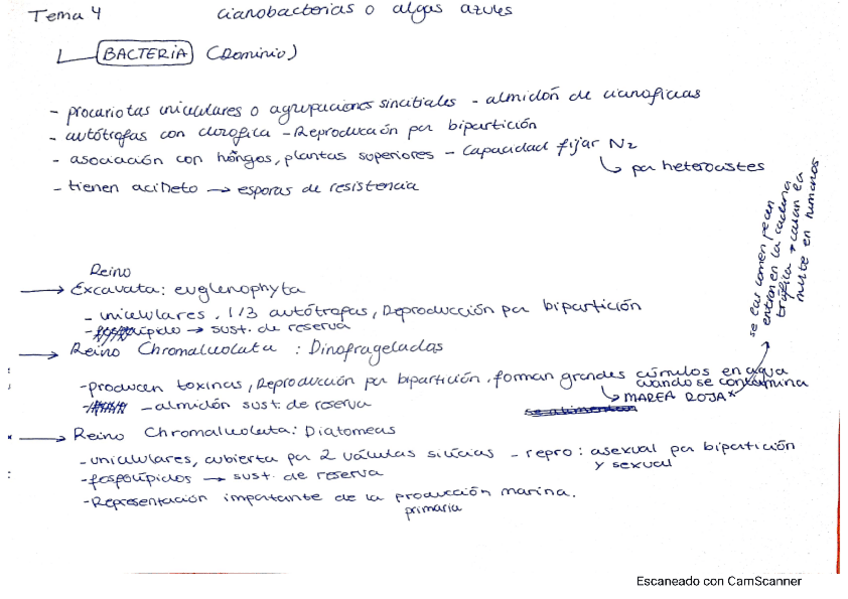 Tema 4 cianobacterias o algas azules
BACTERIA (Dominio)
- procariotas unicelulares o agrupaciones sincitiales - almidón de cianofíceas
- autótrofas con clorofila - Reproducción por bipartición
- asociación con hongos, plantas superiores - Capacidad fijar N2
↳ por heterocistes
- tienen acineto → esporas de resistencia
Reino
→ Excavata: euglenophyta
- unicelulares, 1/3 autótrofas, Reproducción por bipartición
- lípido → sust. de reserva
→ Reino Chromalveolata : Dinofragelados
- producen toxinas, Reproducción por bipartición, forman grandes cúmulos en agua
cuando se contamina
↳ MAREA ROJA*
- almidón sust. de reserva
se las comen pecen
entran en la cadena
trófica + causan la
muerte en humanos
→ Reino Chromalveolata: Diatomeas
- unicelulares, cubierta por 2 válvulas silícias - repro: asexual por bipartición
y sexual
- fospolípidos → sust. de reserva
- Representación importante de la producción marina.
primaria
Escaneado con CamScanner